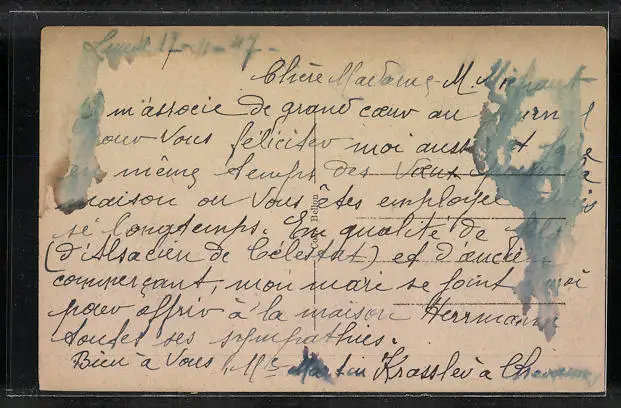 Lundi 17-11-47-
Chère Madame M.
m'associe de grand cœur au
pour Vous féliciter moi aussi et
en même temps des Vœux la
maison ou Vous êtes employée
si longtemps. En qualité de
(d'Alsacien de Célestat) et d'ancien
commerçant, mon mari se joint moi
pour offrir à la maison Herrmann
toutes ses sympathies.
Bien à Vous, Martin Krassler à